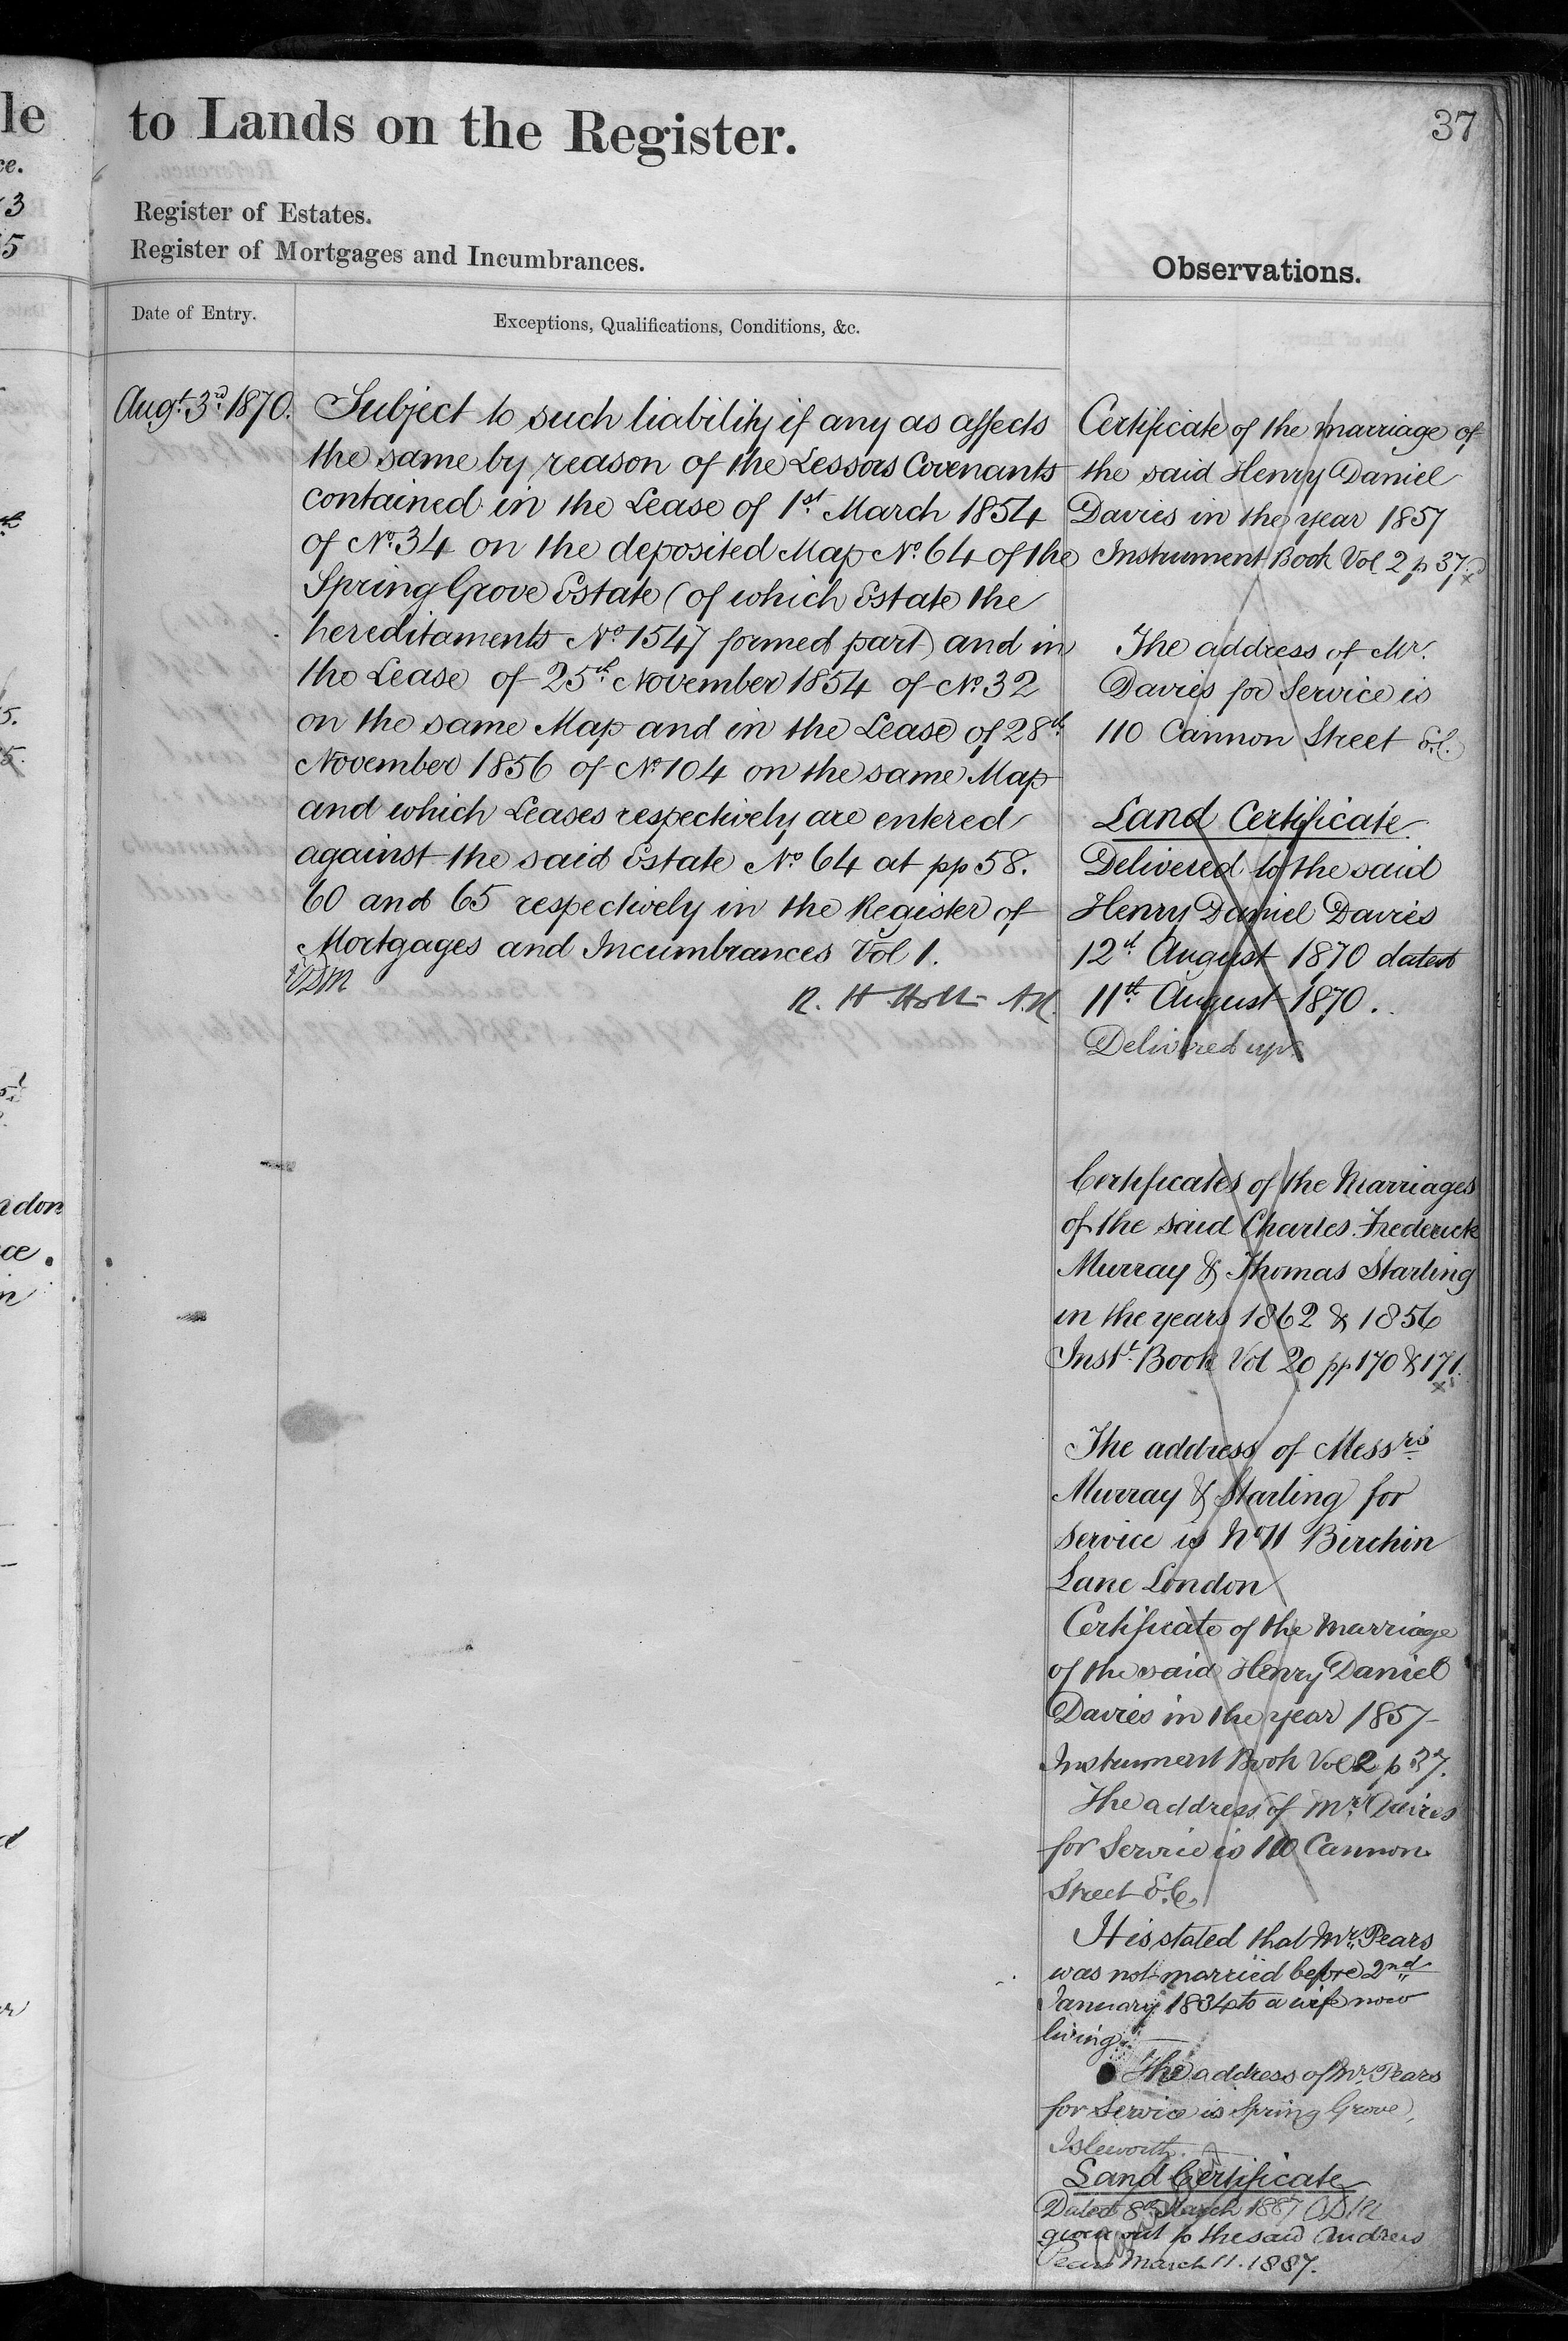 le
to Lands on the Register.
37
ce.
3
5
Register of Estates.
Register of Mortgages and Incumbrances.
Observations.
Date of Entry.
Exceptions, Qualifications, Conditions, &c.
Augt. 3d. 1870.
Subject to such liability if any as affects
the same by reason of the Lessors Covenants
contained in the Lease of 1st March 1854
of No. 34 on the deposited Map No. 64 of the
Spring Grove Estate (of which Estate the
hereditaments No. 1547 formed part) and in
the Lease of 25th November 1854 of No. 32
on the same Map and in the Lease of 28th
November 1856 of No. 104 on the same Map
and which Leases respectively are entered
against the said Estate No. 64 at pp 58.
60 and 65 respectively in the Register of
Mortgages and Incumbrances Vol 1.
R. H. Holt A.R.
Certificate of the marriage of
the said Henry Daniel
Davies in the year 1857
Instrument Book Vol 2 p 37.
The address of Mr.
Davies for Service is
110 Cannon Street E.C.
Land Certificate
Delivered to the said
Henry Daniel Davies
12th August 1870 dated
11th August 1870.
Delivered up
Certificates of the Marriages
of the said Charles Frederick
Murray & Thomas Starling
in the years 1862 & 1856
Instt. Book Vol 20 pp 170 & 171.
The address of Messrs
Murray & Starling for
Service is No 11 Birchin
Lane London
Certificate of the Marriage
of the said Henry Daniel
Davies in the year 1857
Instrument Book Vol 2 p 37.
The address of Mr. Davies
for Service is 110 Cannon
Street E.C.
It is stated that Mr. Pears
was not married before 2nd
January 1834 to a wife now
living.
The address of Mr. Pears
for Service is Spring Grove,
Isleworth.
Land Certificate
Dated 8th March 1887
given out to the said Andrew
Pears March 11. 1887.